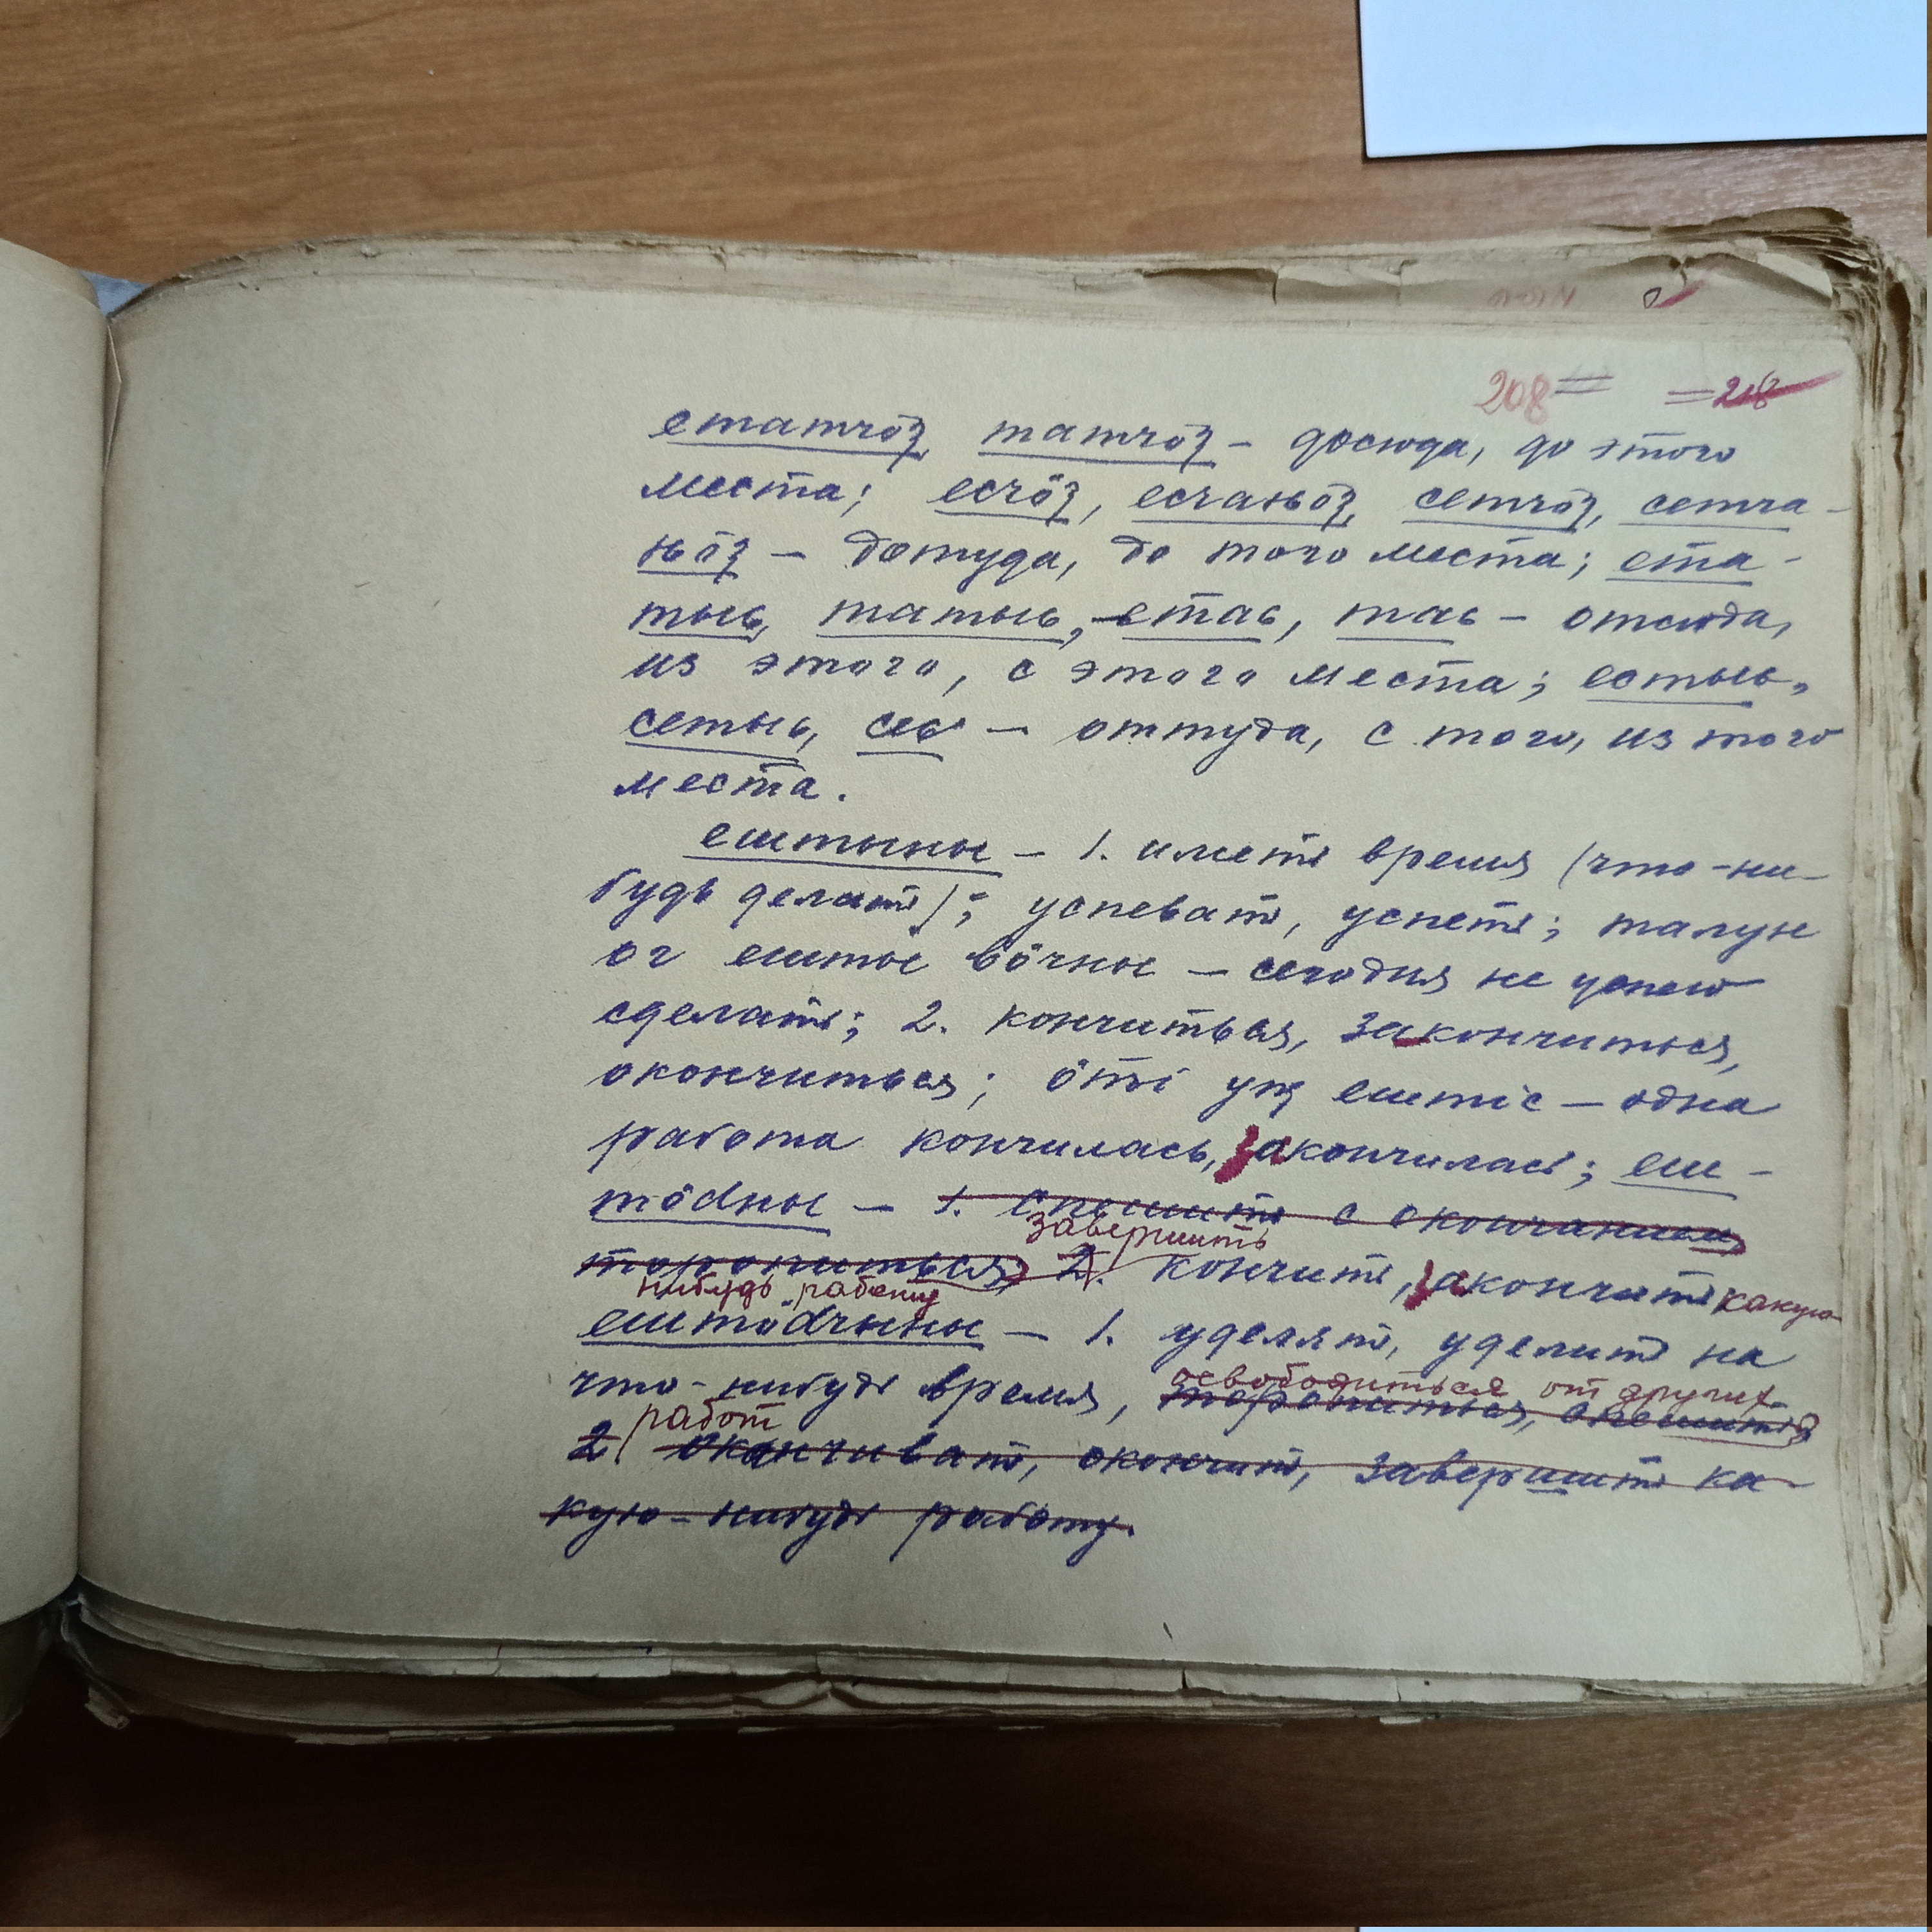 208 = = 218
етатчӧԇ, татчӧԇ – досюда, до этого
места; есчӧԇ, есчаԋӧԇ, сетчӧԇ, сетча-
ԋӧԇ – дотуда, до того места; ета-
тыԍ, татыԍ, етаԍ, таԍ – отсюда,
из этого, с этого места; естыԍ,
сетыԍ, сеԍ – оттуда, с того, из того
места.
ештыны – 1. иметь время (что-ни-
будь делать); успевать, успеть; талун
ог ешты вӧчны – сегодня не успею
сделать; 2. кончиться, закончиться,
окончиться; ӧтi уҗ ештiс – одна
работа кончилась, акончилась; еш-
тӧdны – 1. Спешить с окончанием,
завершить
торопиться; 2. кончить, акончить какую
нибудь работу
ештӧdчыны – 1. уделять, уделить на
что-нибудь время, торопиться, спешить;
освободиться от других
работ
2. оканчивать, окончить, завершить ка-
кую-нибудь работу.